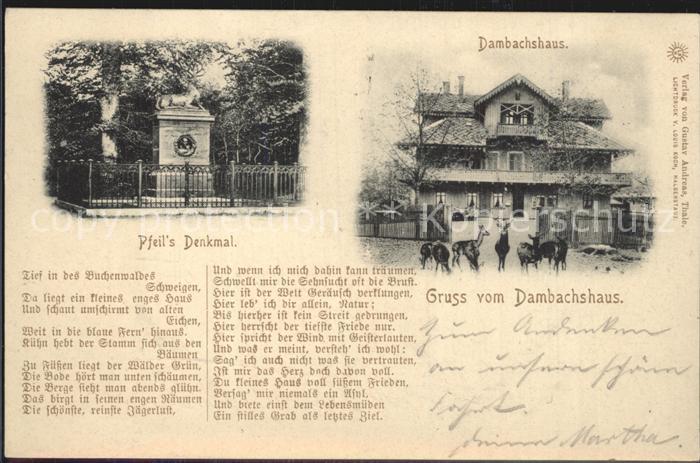 Dambachshaus.
Pfeil's Denkmal.
Tief in des Buchenwaldes
Schweigen,
Da liegt ein kleines enges Haus
Und schaut umschirmt von alten
Eichen,
Weit in die blaue Fern' hinaus.
Kühn hebt der Stamm sich aus den
Bäumen
Zu Füßen liegt der Wälder Grün,
Die Bode hört man unten schäumen,
Die Berge sieht man abends glühn.
Das birgt in seinen engen Räumen
Die schönste, reinste Jägerlust,
Und wenn ich mich dahin kann träumen,
Schwellt mir die Sehnsucht oft die Brust.
Hier ist der Welt Geräusch verklungen,
Hier leb' ich dir allein, Natur;
Bis hierher ist kein Streit gedrungen,
Hier herrscht der tiefste Friede nur.
Hier spricht der Wind mit Geisterlauten,
Und was er meint, versteh' ich wohl:
Sag' ich auch nicht was sie vertrauten,
Ist mir das Herz doch davon voll.
Du kleines Haus voll süßem Frieden,
Versag' mir niemals ein Asyl,
Und biete einst dem Lebensmüden
Ein stilles Grab als letztes Ziel.
Gruss vom Dambachshaus.
Zum Andenken
an unsere schöne
Fahrt.
deine Martha.
Verlag von Gustav Andreas, Thale.
LICHTDRUCK V. LOUIS KOCH, HALBERSTADT.
Copyright Peter Konschutzer